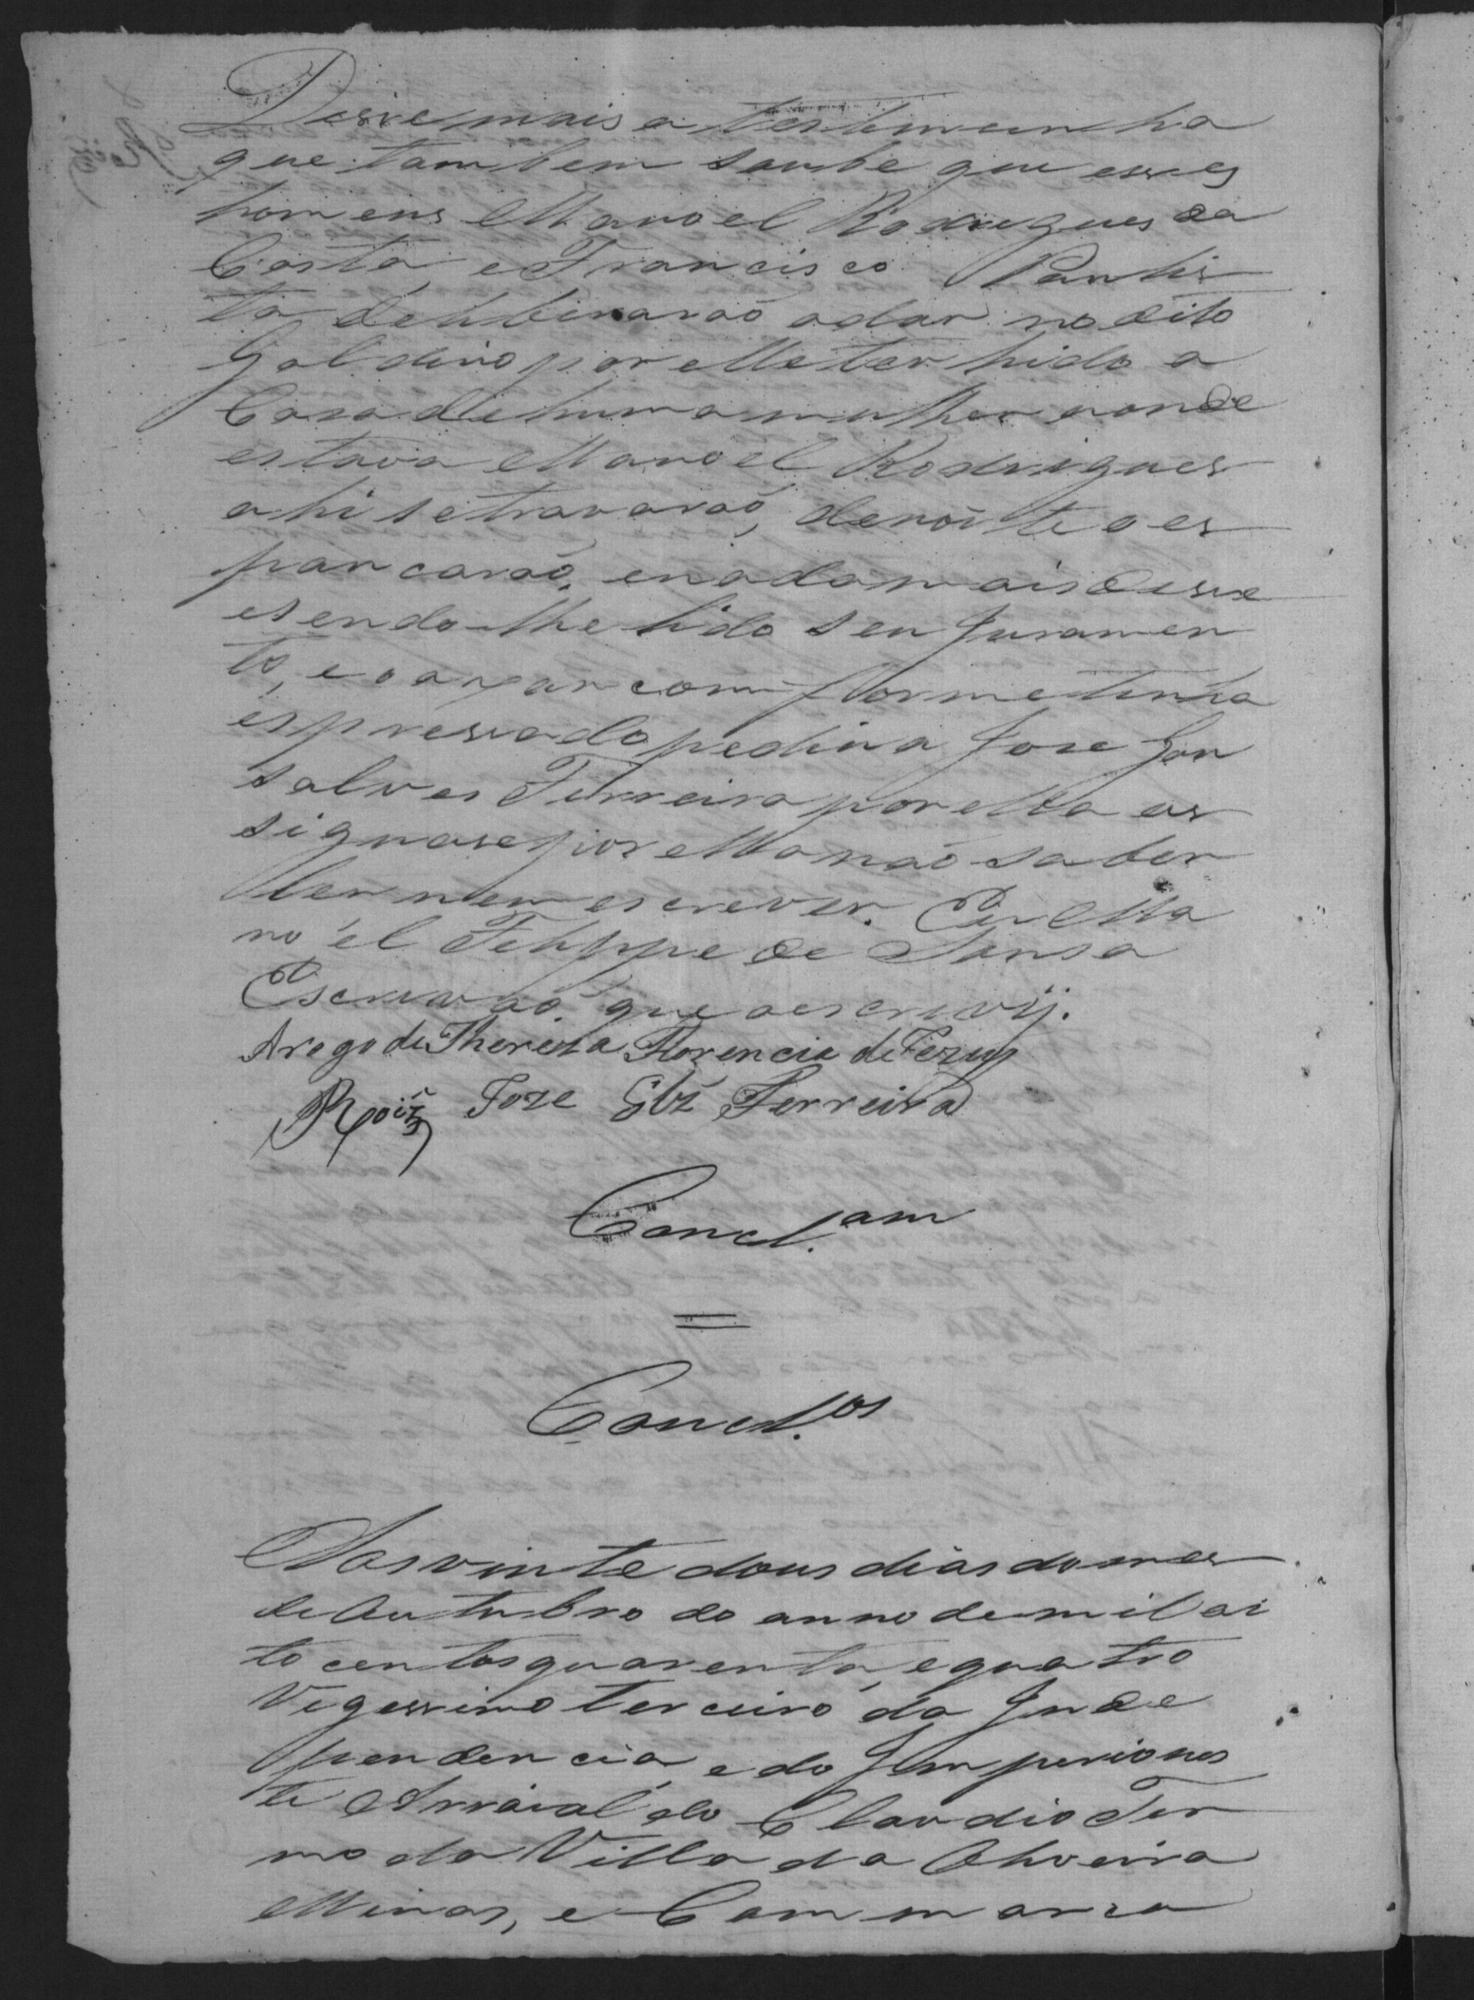 Disse mais a testemunha
que tambem soube que esses
homens Manoel Rodrigues da
Costa, e Francisco Paulis
ta deliberarão a dar no dito
Galdino por elle ter hido a
Casa de huma mulher aonde
estava Manoel Rodrigues
ahi se travarão, de noite o es
pancarão, e nada mais disse
e sendo-lhe lido seu Juramen
to, e o axar comforme tinha
espressado pedio a Jose Gon
salves Ferreira por ella as
signase por ella não saber
ler nem escrever. Eu Ma
noel Felippe de Sousa
Escrivão que o escrivÿ.
Arogo de Thereza Florencia de Jezus
Roiz Joze Glz Ferreira
Concl.am
Concl.os
Aos vinte dous dias do mes
de Autubro do anno de mil oi
to centos quarenta, e quatro
Vigessimo terceiro da Inde
pendencia, e do Imperio nes
te Arraial do Claudio Ter
mo da Villa da Oliveira
Minas, e Commarca